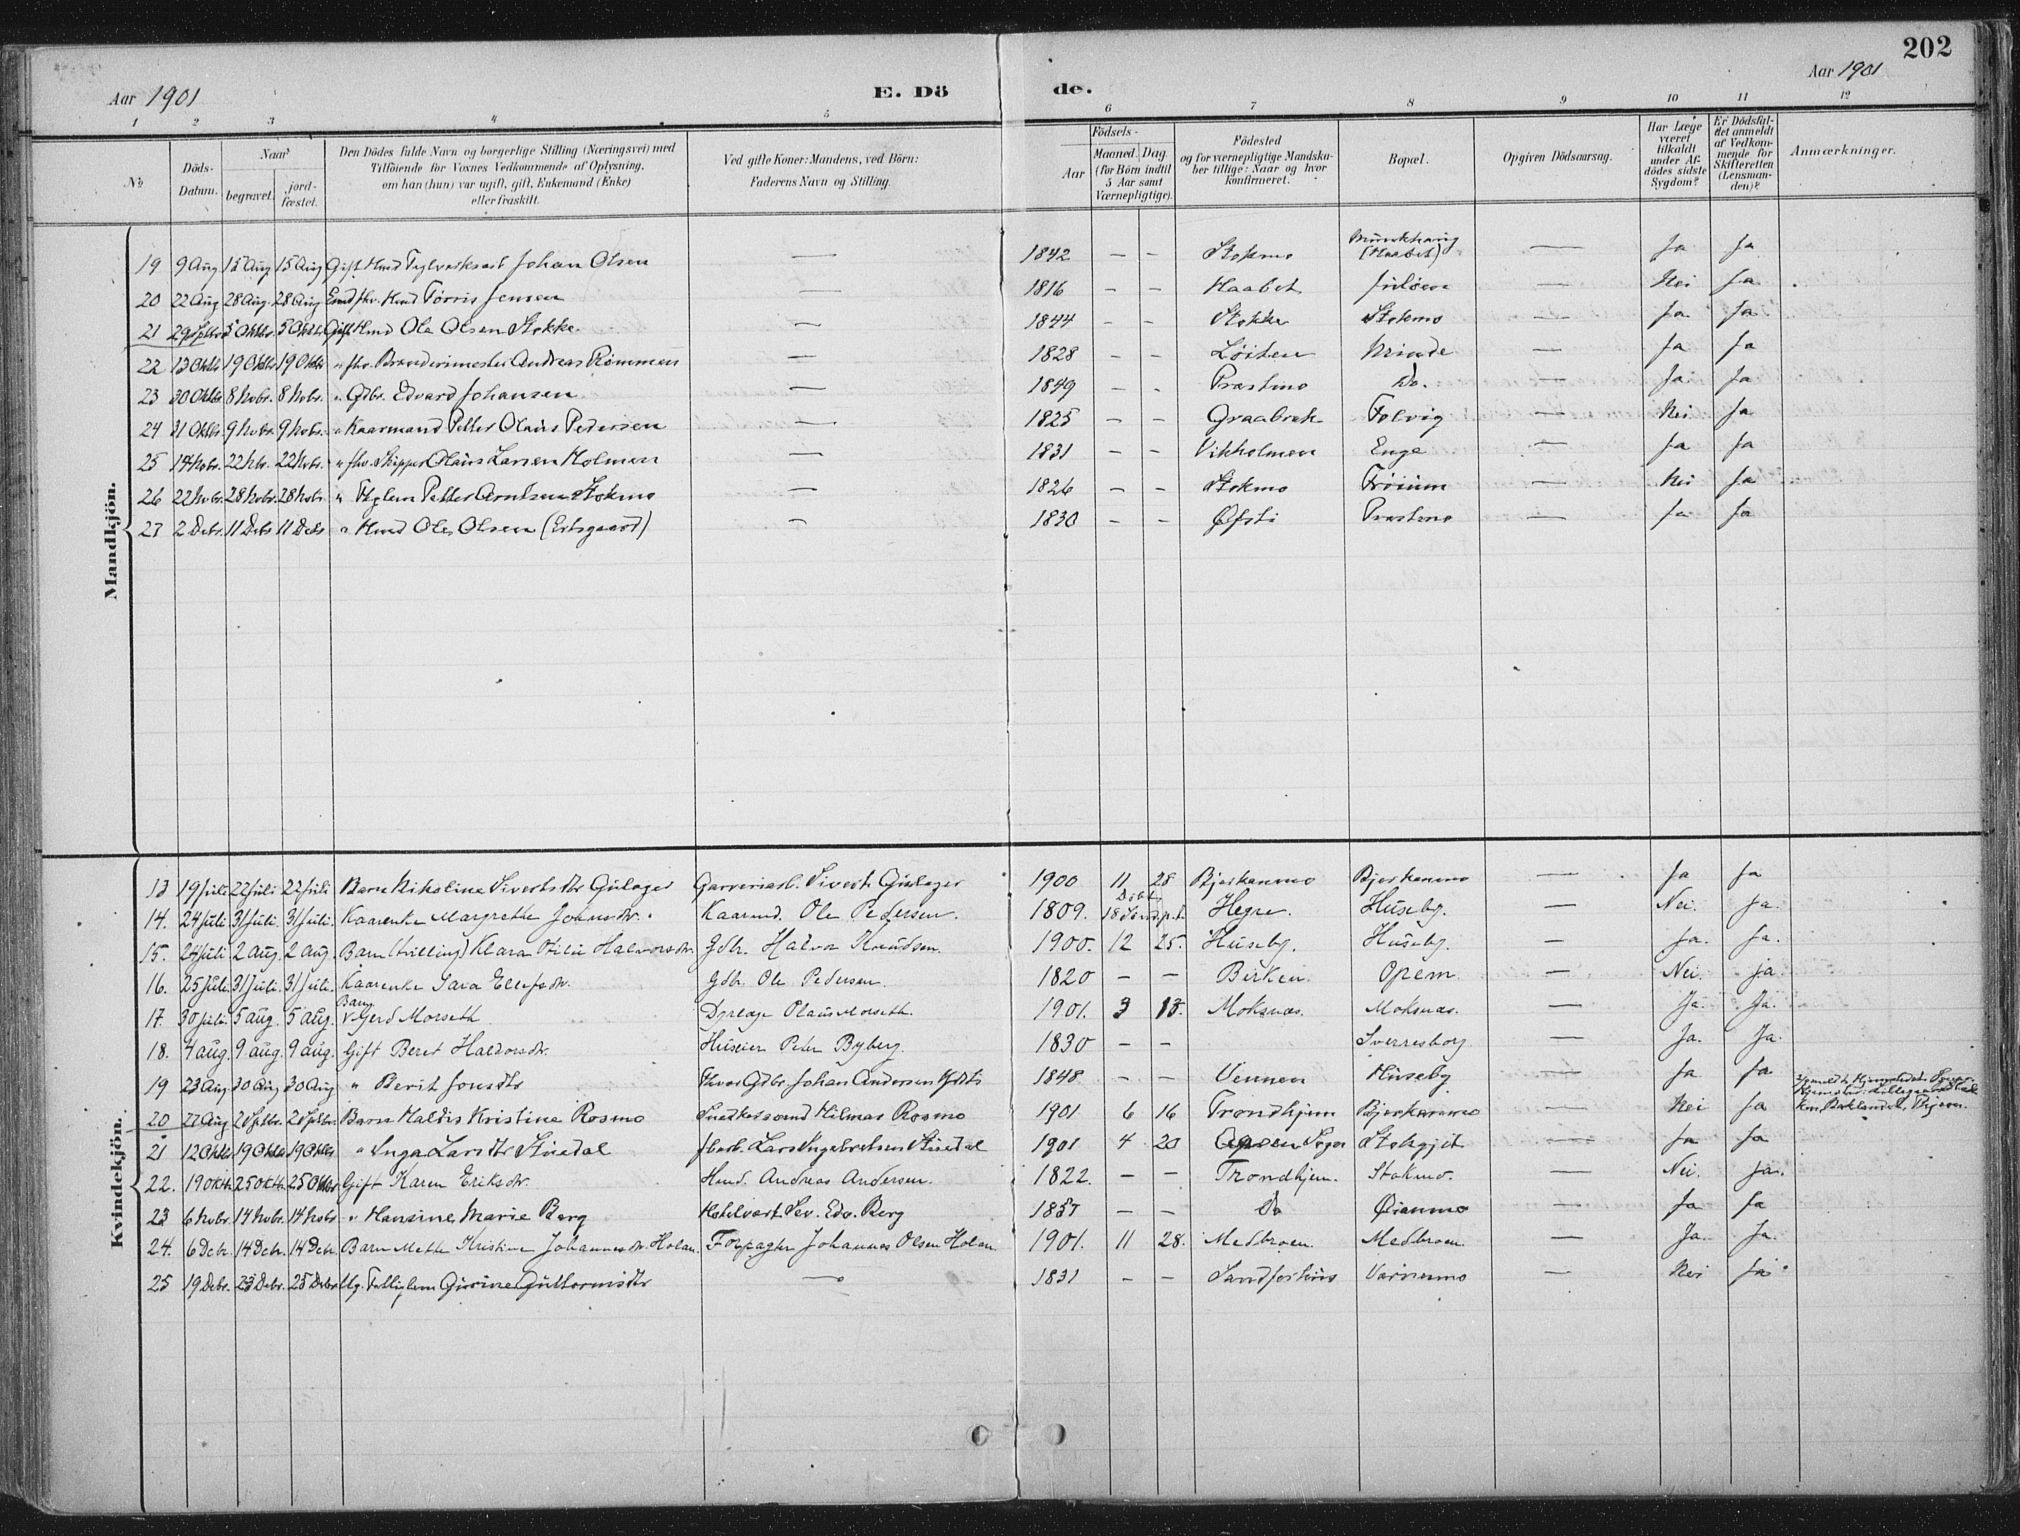 202
Aar 1901 E. Dö de. Aar 1901
1 2 3 4 5 6 7 8 9 10 11 12
No
Döds-Datum.
Naar
begravet.
jord-fæstet.
Den Dödes fulde Navn og borgerlige Stilling (Næringsvei) med
Tilföiende for Voxnes Vedkommende af Oplysning,
om han (hun) var ugift, gift, Enkemand (Enke)
eller fraskilt.
Ved gifte Koner: Mandens, ved Börn:
Faderens Navn og Stilling.
Födsels-
Aar
Maaned. Dag
(for Börn indtil
5 Aar samt
Værnepligtige).
Födested
og for værnepligtige Mandska-
ber tillige: Naar og hvor
konfirmeret.
Bopæl.
Opgiven Dödsaarsag.
Har Læge
været
tilkaldt
under Af-
dödes sidste
Sygdom?
Er Dödsfal-
det anmeldt
af Vedkom-
mende for
Skifteretten
(Lensman-
den)?
Anmærkninger.
Mandkjön.
19 9 Aug 15 Aug 15 Aug Gift Hmd Johan Olsen — 1842 — — Stokmo (Haabet) — Ja Ja
20 22 Aug 28 Aug. 28 Aug Emd fhv. Hmd Tørris Jensen — 1816 — — Haabet Nei Ja
21 29 Septbr 5 Oktbr 5 Oktbr Gift Hmd Ole Olsen Stokke — 1844 — — Stokke Stokmo — Ja Ja
22 13 Oktbr 19 Oktbr 19 Oktbr " fhv. Andreas Rømmen — 1828 — — Løiten Krinde — Ja Ja
23 30 Oktbr 8 Novbr. 8 Novbr. " Gdbr. Edvard Johansen — 1849 — — Præstmo Do. — Ja Ja
24 31 Oktbr 9 Novbr. 9 Novbr. " Kaarmand Petter Olaus Pedersen — 1825 — — Graabrek Folvig — Nei Ja
25 14 Novbr. 22 Nvbr. 22 Novbr. " fhv. Skipper Olaus Larsen Holmen — 1831 — — Vikholmen Enge — Ja Ja
26 22 Novbr. 28 Novbr. 28 Novbr " Petter Arntsen Stokmo — 1826 — — Stokmo — Nei Ja
27 2 Debr. 11 Debr 11 Debr " Hmd Ole Olsen (Ertsgaard) — 1830 — — Øfsti Præstmo — Ja Ja
Kvindekjön.
13 19 Juli 22 Juli 22 Juli Barn Nikoline Sivertsdtr Gulager Garveriarb. Sivert Gulager 1900 11 28 Bjerkanmo Bjerkanmo — Ja Ja
14. 24 Juli 31 Juli. 31 Juli. Kaarenke Margrethe Johnsdtr. Kaarmd. Ole Pedersen. 1809. Døbt Hegre. Huseby. — Nei. Ja.
15. 24 Juli 2 aug. 2 aug. Barn (tvilling) Klara Otilie Halvorsdtr. Gdbr. Halvor Knudsen. 1900. 12 25. Huseby. Huseby. — Ja. Ja.
16. 25 Juli. 31 Juli. 31 Juli. Kaarenke Sara Ellefsdtr. Gdbr. Ole Pedersen. 1820 — — Birken. Opem. — Nei. ja.
17. 30 Juli. 5 aug. 5 aug. Barn Gjerd Morseth Dyrlæge Olaus Morseth. 1901. 3 13. Moksnæs. Moksnæs. — Ja. Ja.
18. 4 aug. 9 aug. 9 aug. Gift Beret Haldorsdtr. Huseier Peter Byberg. 1830 — — Sverresborg — Ja. Ja.
19 23 Aug 30 Aug 30 Aug " Berit Jonsdtr Gdbr. Johan Andersen 1848 — — Vennen Huseby — Ja Ja
20 27 Aug 20 Sptbr. 20 Sptbr. Barn Haldis Kristine Rosmo Snedkersvend Hilmar Rosmo 1901 6 16 Trondhjem Bjerkanmo — Nei Ja
21 12 Oktbr 19 Oktbr 19 Oktbr " Inga Larsdtr Stuedal Lars Ingebretsen Stuedal 1901 4 20 Stokgjit — Ja Ja
22. 19 Oktb. 25 Oktb. 25 Oktbr Gift Karen Eriksdtr. Hmd. Andreas Andersen. 1822. — — Trondhjem. Stokmo. — Nei. ja.
23 6 Novbr. 14 Novbr. 14 Novbr " Hansine Marie Berg Hotelvært Sev. Edv. Berg 1857 — — Do Øianmo — Ja Ja
24. 6 Debr. 14 Debr. 14 Debr. Barn Mette Kristine Johannesdtr. Holan Forpagter Johannes Olsen Holan 1901. 11 28. Medbroen Medbroen — Ja. Ja.
25 19 Debr. 23 Debr. 23 Debr Ug. Guttormsdtr — 1831 — — Varmmo — Nei Ja